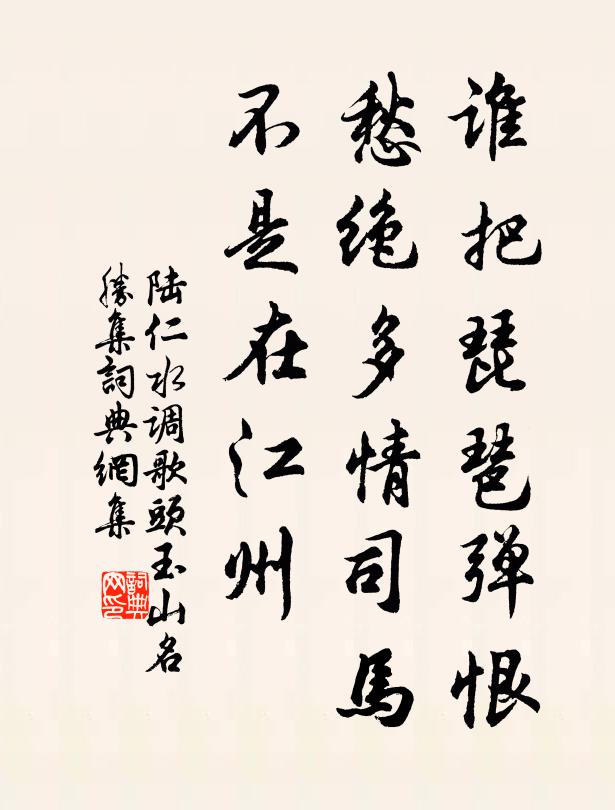 谁把琵琶弹恨
愁绝多情司馬
不是在江州
陆仁水调歌頭玉山名
勝集詞典網集
詞典网印